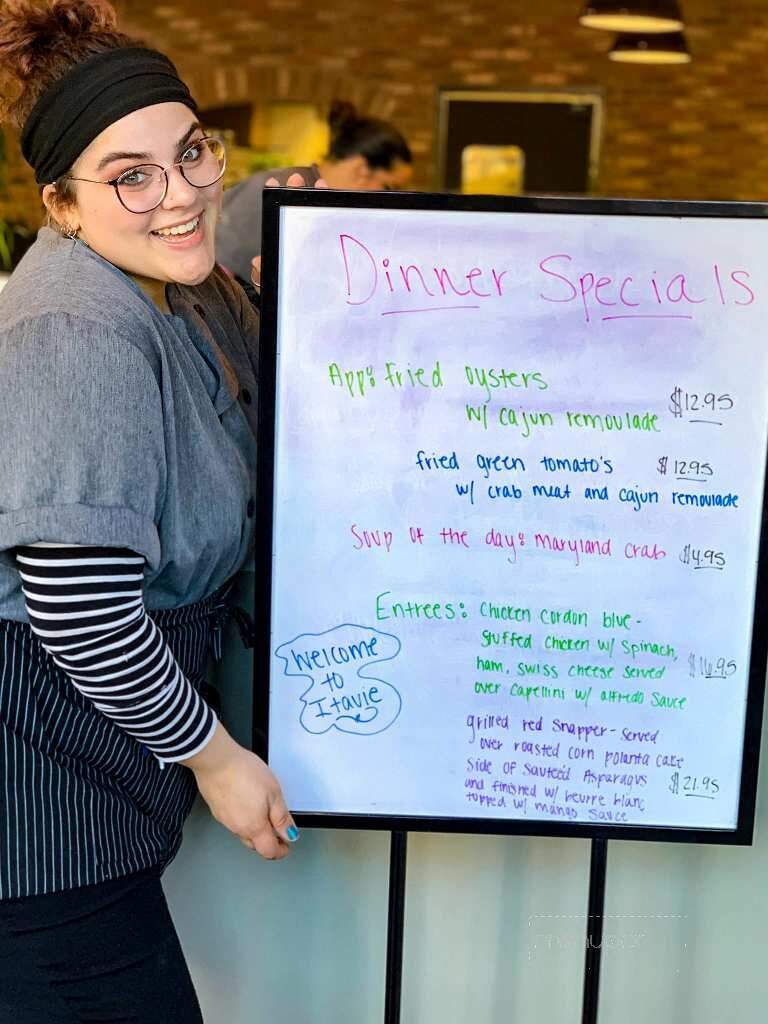 Dinner Specials
App: Fried oysters
w/ cajun remoulade $12.95
fried green tomato's $12.95
w/ crab meat and cajun remoulade
Soup of the day: Maryland Crab $4.95
Entrees: Chicken Cordon blue-
stuffed Chicken w/ Spinach,
ham, swiss cheese served $16.95
over capellini w/ alfredo sauce
Welcome
to
Itavie
grilled red snapper- served
over roasted corn polanta cake
side of sauteéd Asparagus $21.95
and finished w/ beurre blanc
topped w/ mango sauce